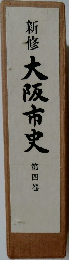 新修
大阪市史
第四巻